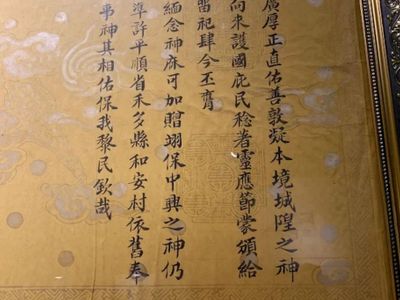 廣厚正直佑善敦凝本境城隍之神
向來護國庇民稔著靈應節蒙頒給
留祀肆今丕膺
緬念神庥可加贈翊保中興之神仍
準許平順省禾多縣和安村依舊奉
事神其相佑保我黎民欽哉